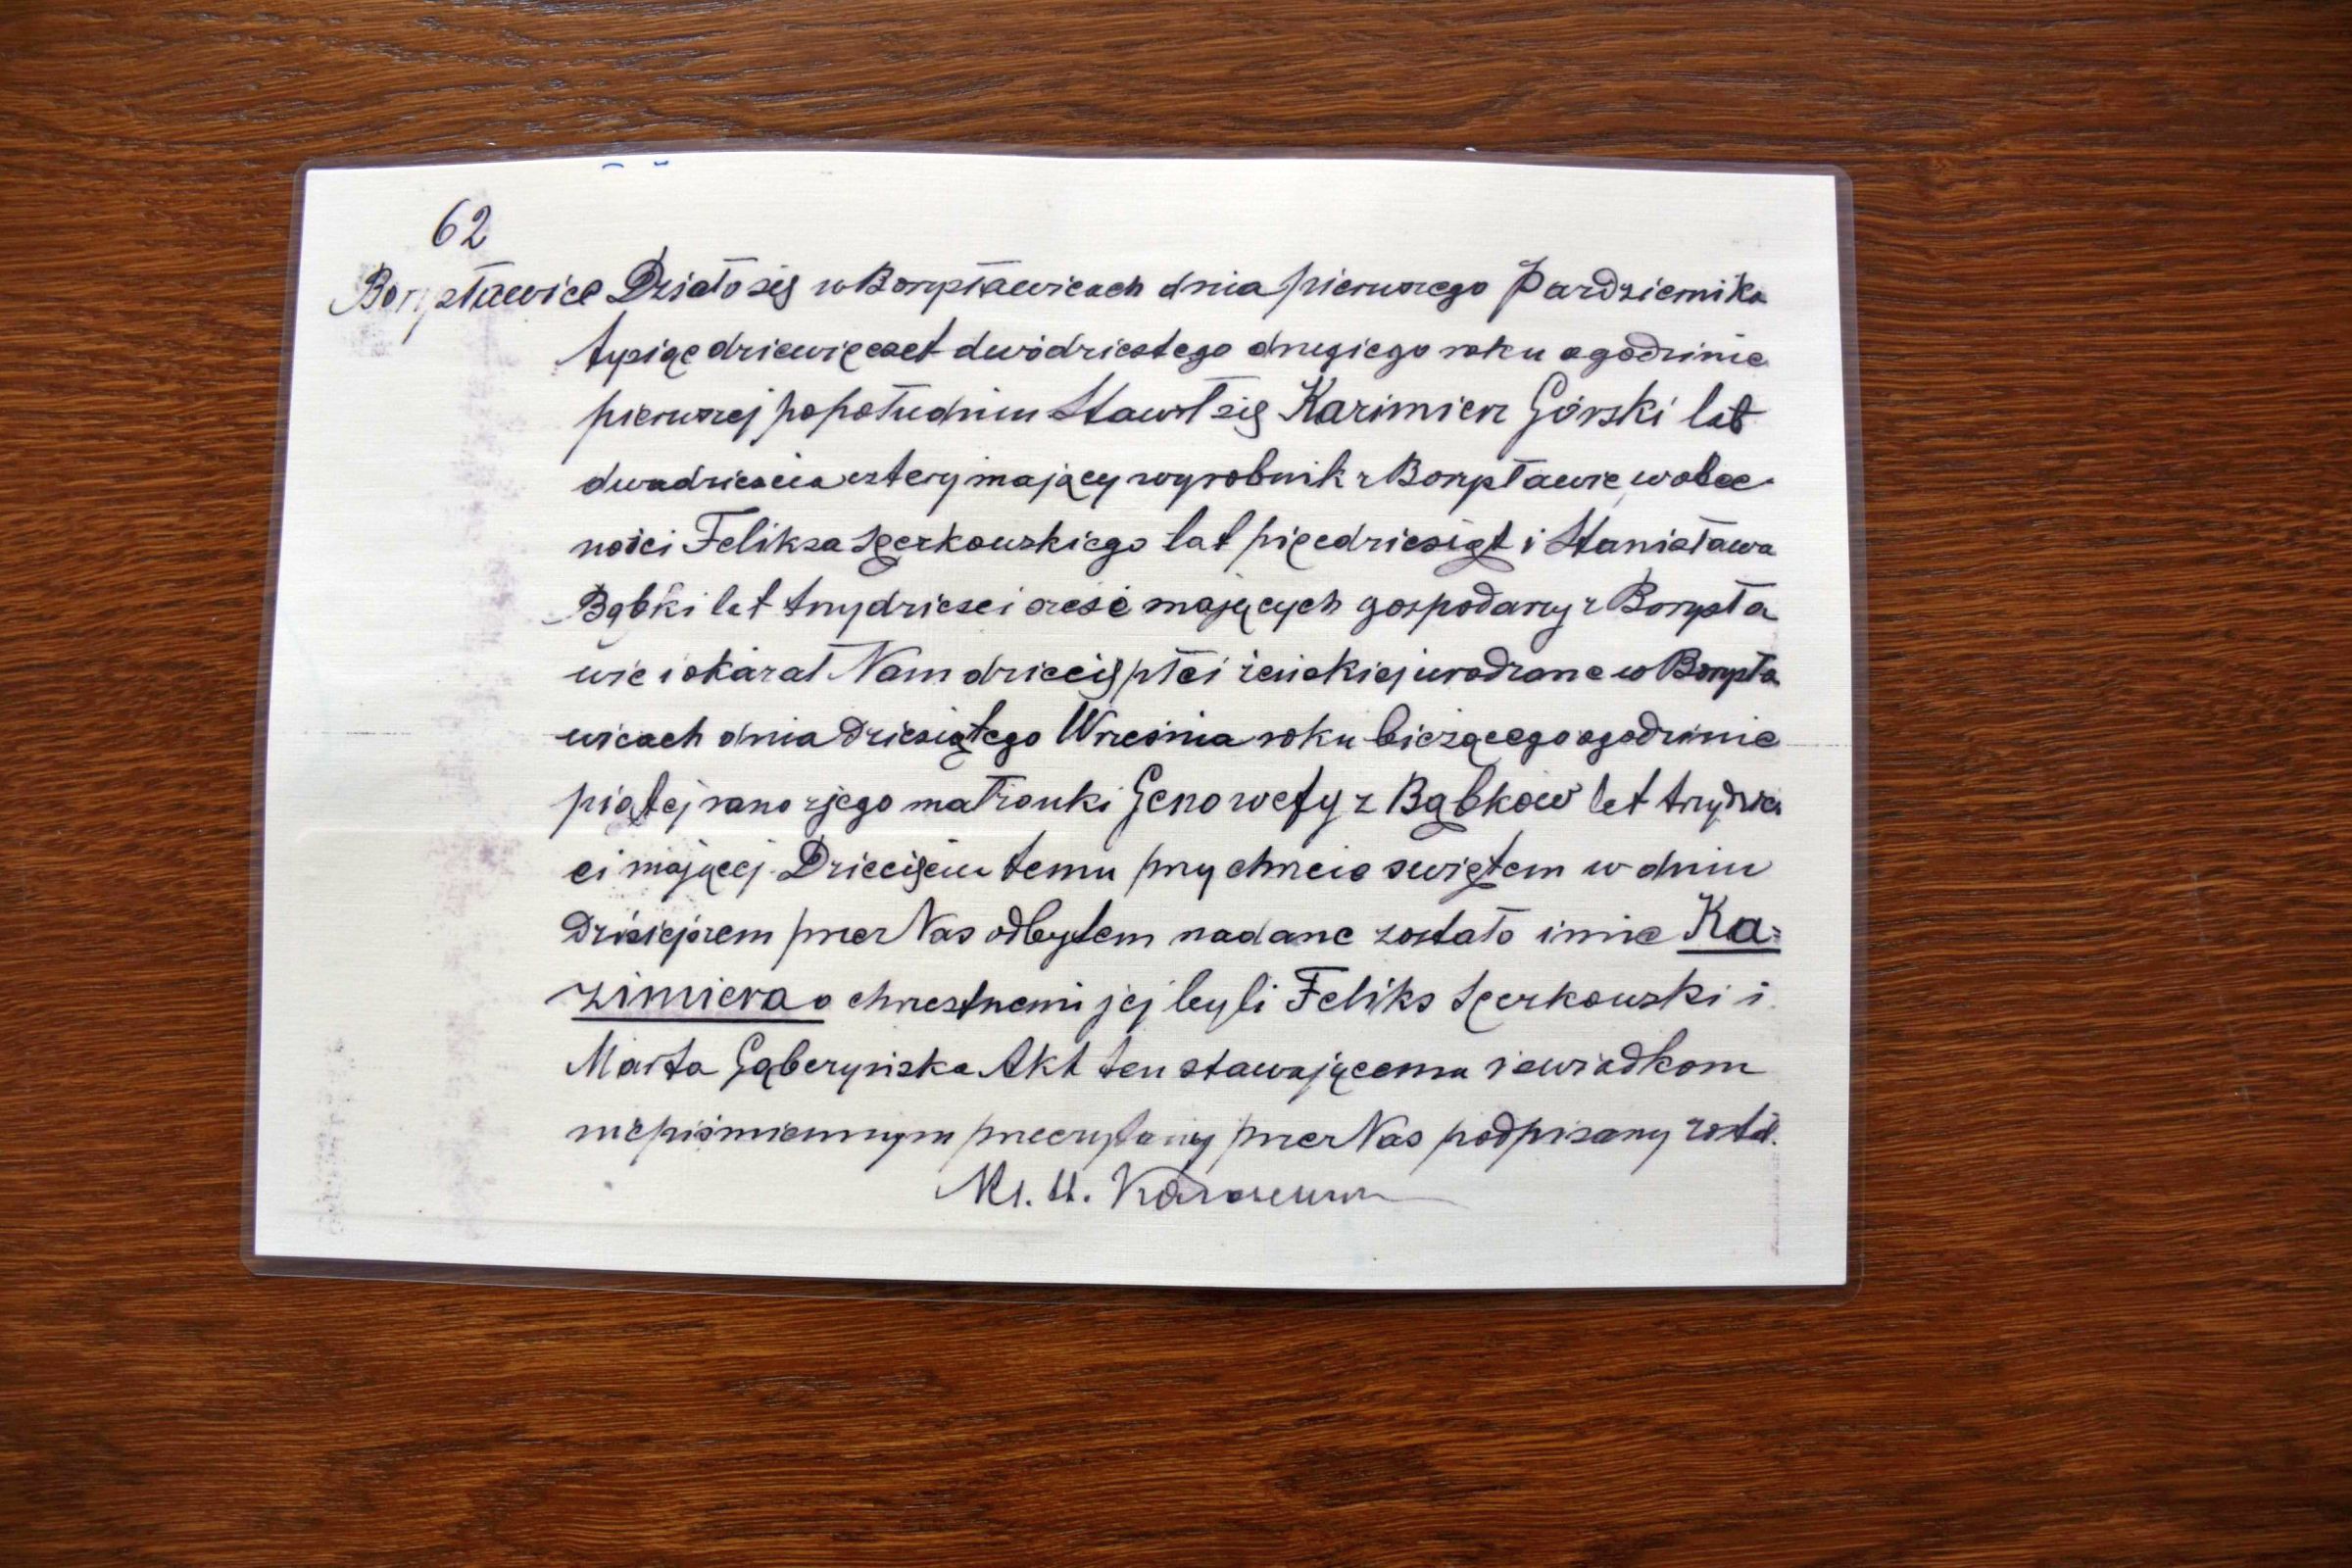 62
Borysławice Działo się w Borysławicach dnia pierwszego Października
tysiąc dziewięćset dwódziestego drugiego roku o godzinie
pierwszej popołudniu Stawił się Kazimierz Górski lat
dwadzieścia cztery mający wyrobnik z Borysławic, w obec-
ności Feliksa Szerkowskiego lat pięćdziesiąt i Stanisława
Bąbki lat trzydzieści sześć mających gospodarzy z Borysła
wic i okazał Nam dziecię płci żeńskiej urodzone w Borysła
wicach dnia dziesiątego Września roku bieżącego o godzinie
piątej rano z jego małżonki Genowefy z Bąbków lat trzydzie
ci mającej. Dziecięciu temu przy chrzcie świętem w dniu
dzisiejszem przez Nas odbytem nadane zostało imie Ka=
zimiera a chrzestnemi jej byli Feliks Szerkowski i
Marta Gąberyńska Akt ten stawającemu i świadkom
niepiśmiennym przeczytany przez Nas podpisany został.